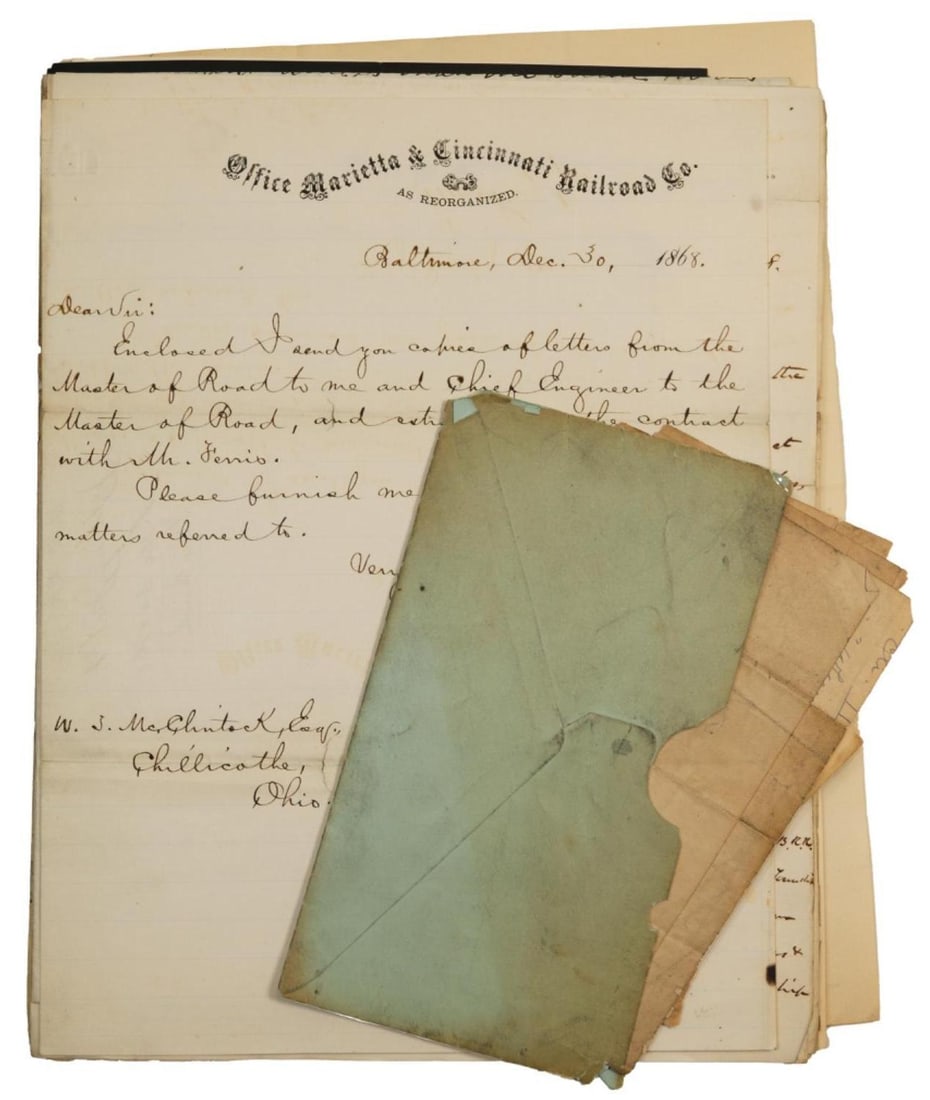 Office Marietta & Cincinnati Railroad Co.
AS REORGANIZED.
Baltimore, Dec. 30, 1868.
Dear Sir:
Enclosed I send you copies of letters from the
Master of Road to me and Chief Engineer to the
Master of Road, and the contract
with Mr. Ferris.
Please furnish me
matters referred to.
Very
W. S. McClintock, Esq.,
Chillicothe,
Ohio.
8.
the
et
B.R.R.